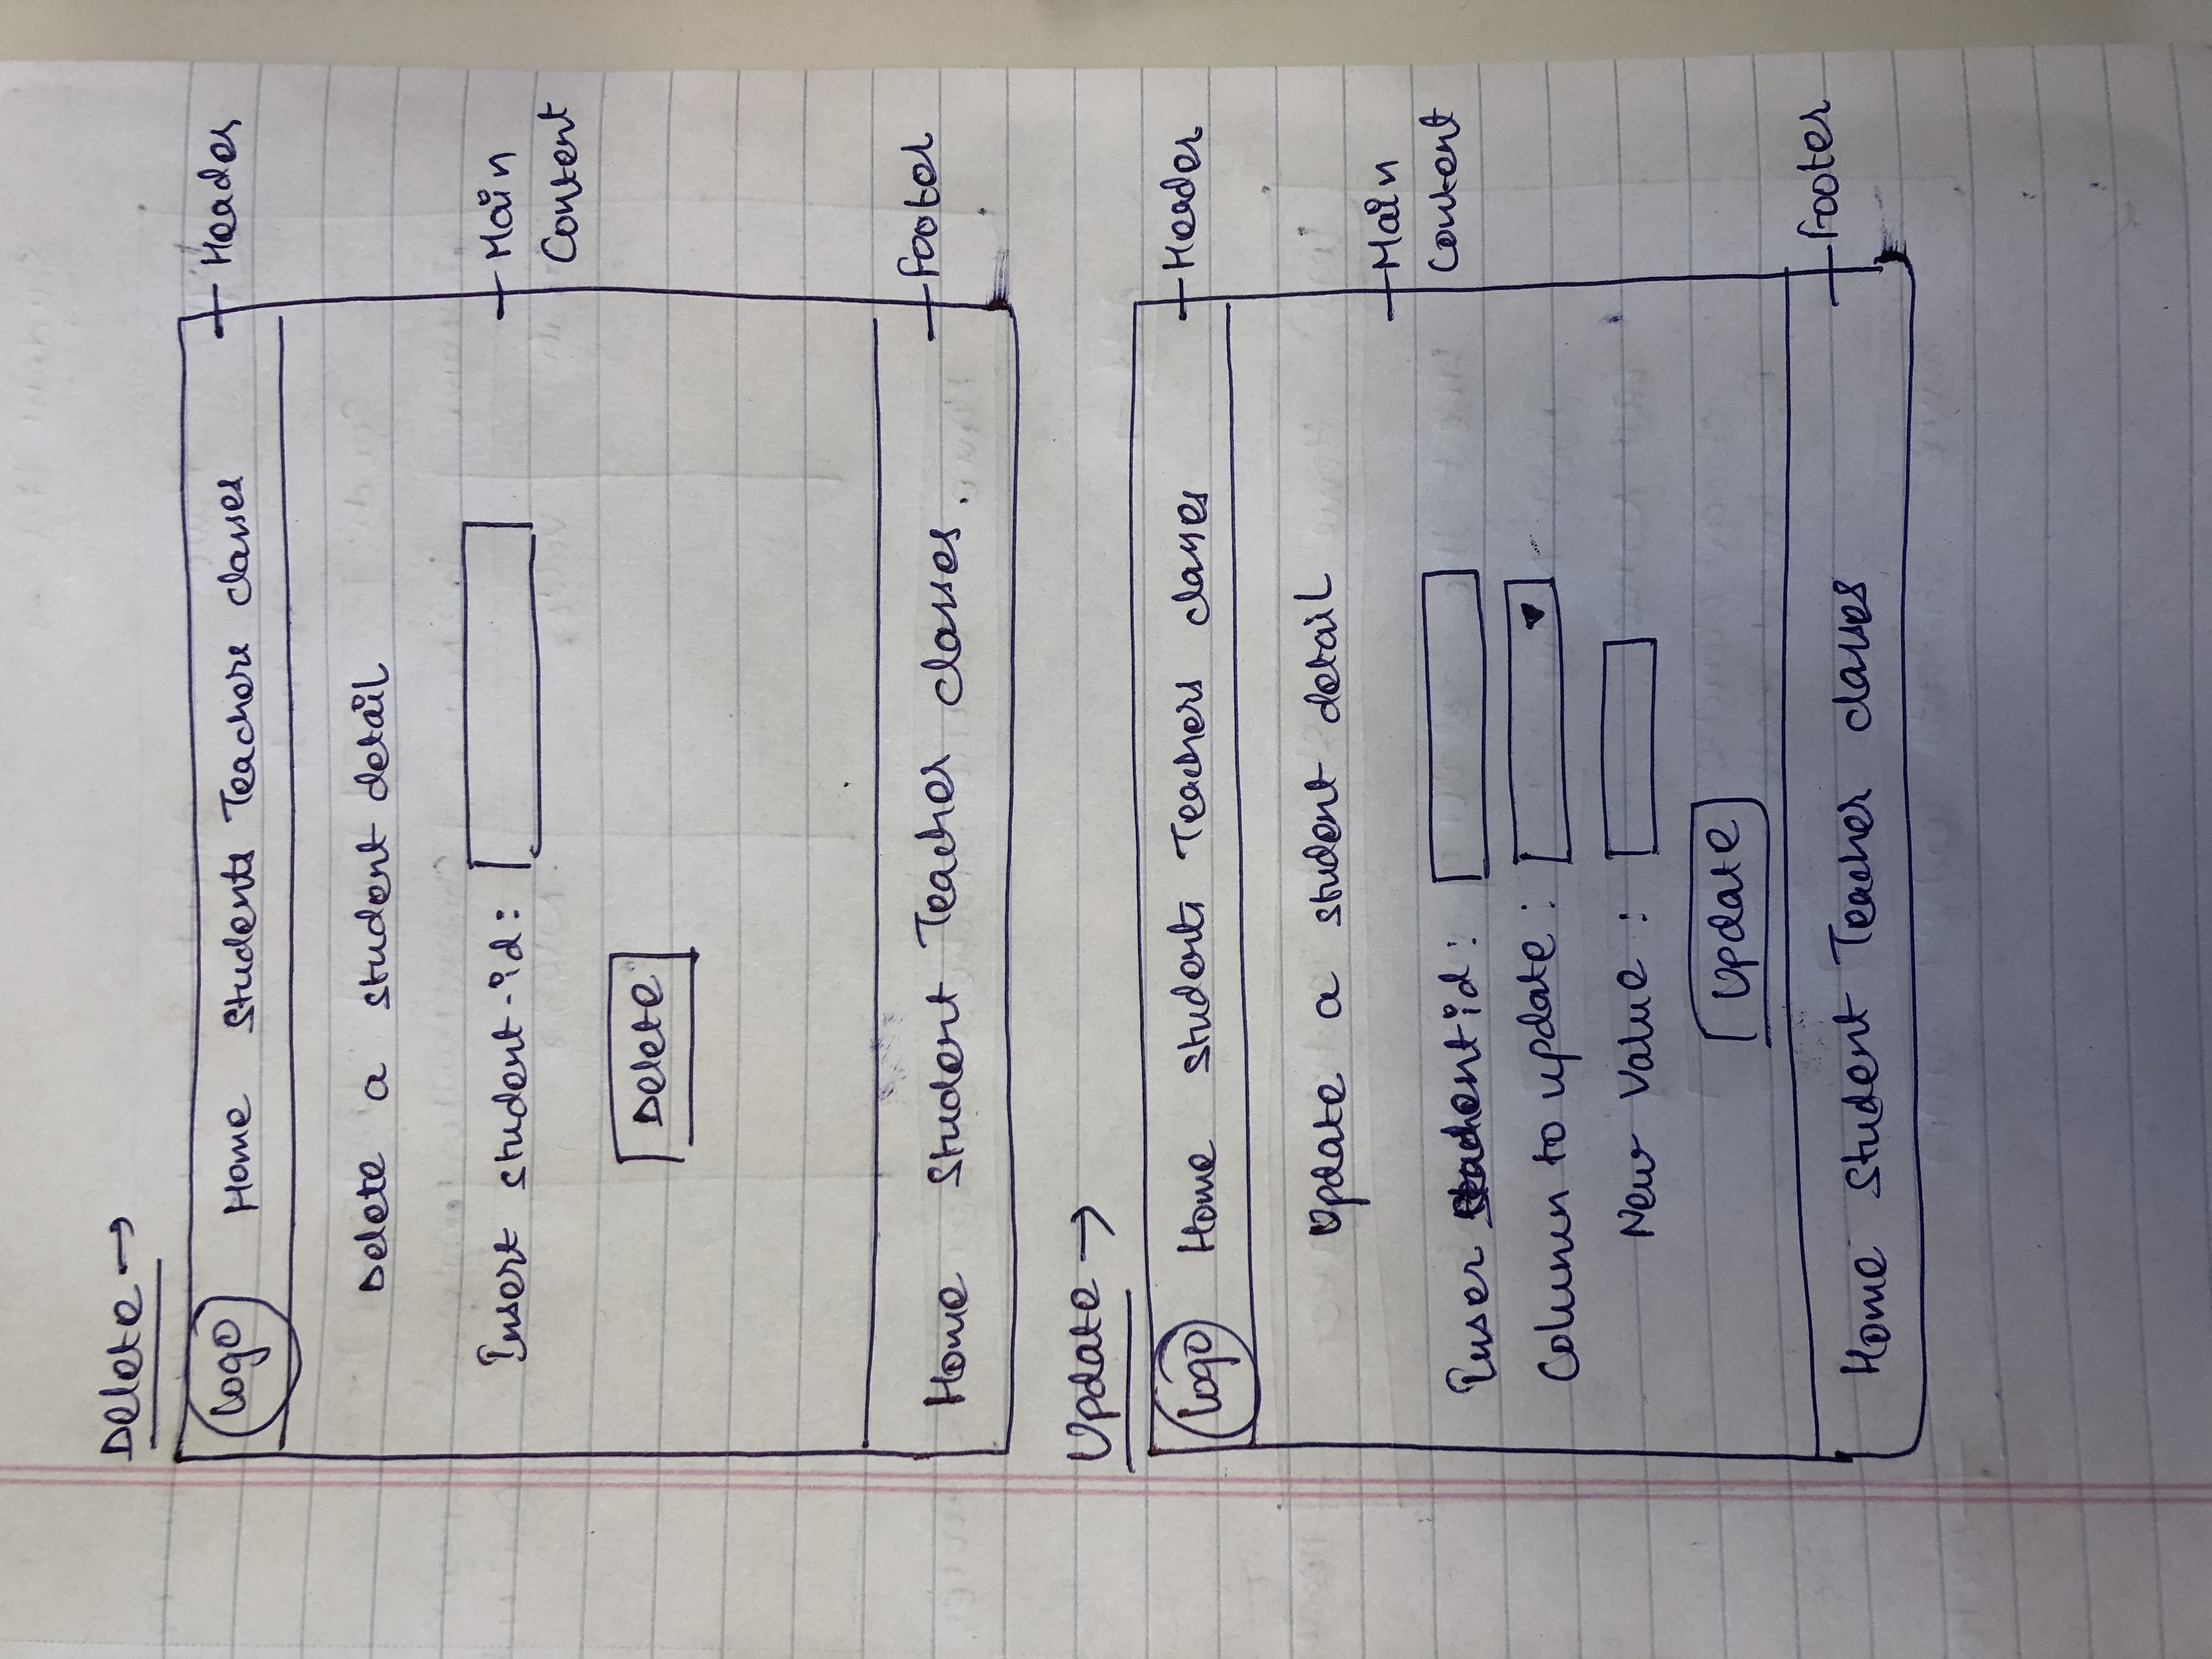 Delete →
Logo Home Students Teachers classes Header
Delete a student detail
Insert student-id: Main
Content
Delete
Home Student Teacher classes. Footer
Update →
Logo Home Students Teachers classes Header
Update a student detail
Main
Content
Inser student id:
Column to update :
New Value :
Update
Home Student Teacher classes Footer